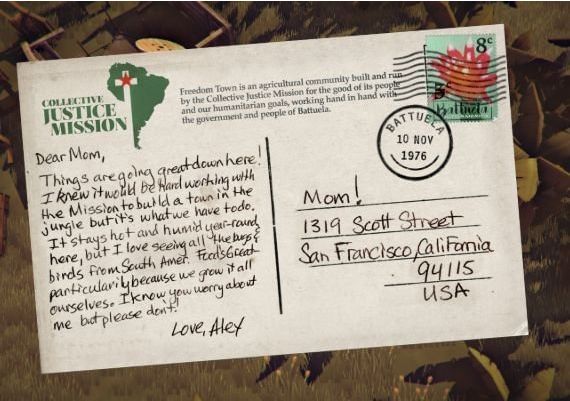 COLLECTIVE
JUSTICE
MISSION
Freedom Town is an agricultural community built and run
by the Collective Justice Mission for the good of its people
and our humanitarian goals, working hand in hand with
the government and people of Battuela.
8c
5c
Battuela
BATTUELA
10 NOV
1976
Dear Mom,
Things are going great down here!
I knew it would be hard working with
the Mission to build a town in the
jungle but it's what we have to do.
It stays hot and humid year-round
here, but I love seeing all the bugs &
birds from South Amer. Food's Great
particularily because we grow it all
ourselves. I know you worry about
me but please don't!
Love, Alex
Mom!
1319 Scott Street
San Francisco, California
94115
USA